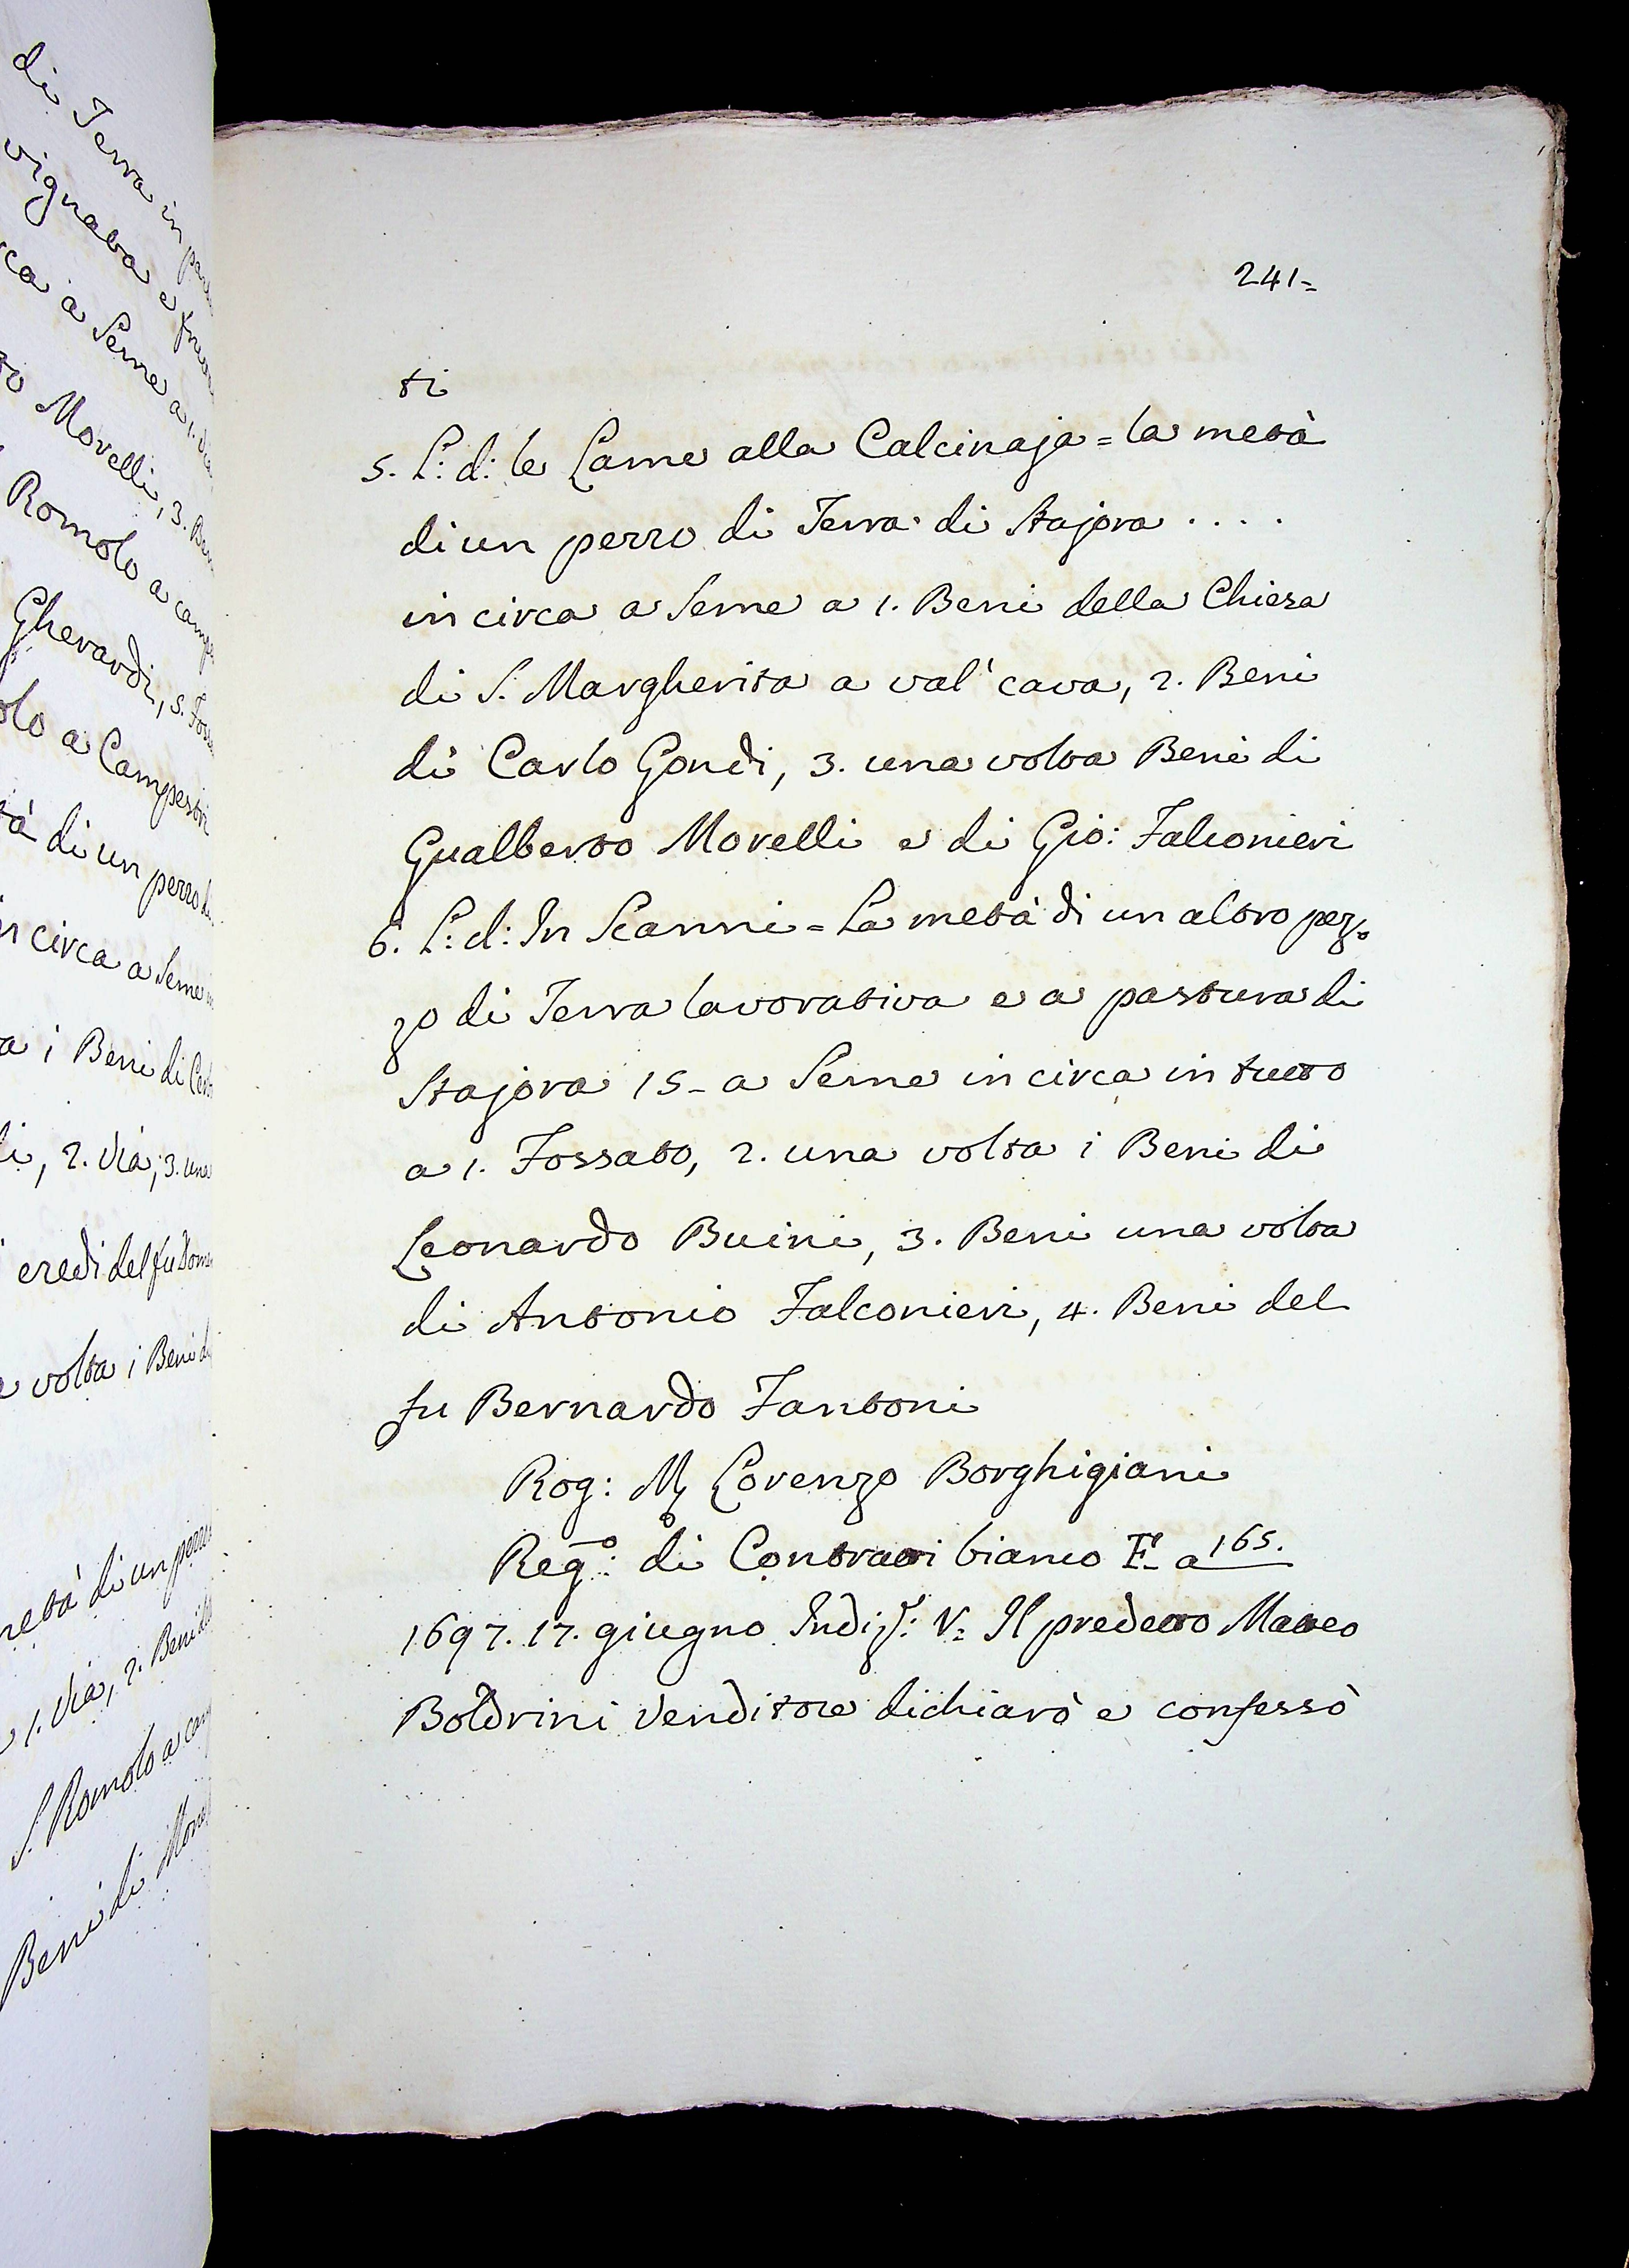 di Terra in
vignata e
ca a Seme a 1. Via
to Morelli, 3. Beni
Romolo a
Gherardi, 5.
olo a Campestri
tà di un pezzo di
in circa a Seme
a i Beni di
li, 2. Via, 3. una
eredi del fu
e volta i Beni di
metà di un pezzo
1. Via, 2. Beni
S. Romolo a
Beni di
241=
ti
5. L: d: le Lame alla Calcinaja = la metà
di un pezzo di Terra di Stajora . . . .
in circa a Seme a 1. Beni della Chiesa
di S. Margherita a val' cava, 2. Beni
di Carlo Gondi, 3. una volta Beni di
Gualberto Morelli e di Gio: Falconieri
6. L: d: In Scanni = La metà di un altro pez=
zo di Terra lavorativa e a pastura di
Stajora 15- a Seme in circa in tutto
a 1. Fossato, 2. una volta i Beni di
Leonardo Buini, 3. Beni una volta
di Antonio Falconieri, 4. Beni del
fu Bernardo Fantoni
Rog: M Lorenzo Borghigiani
Reg.o: di Contratti bianco F. a 165.
1697. 17. giugno Indiz: V: Il predetto Matteo
Boldrini Venditore dichiarò e confessò